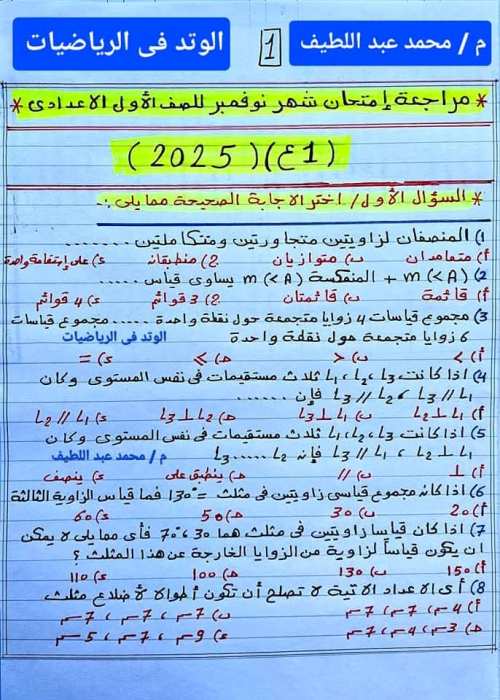 م / محمد عبد اللطيف 1 الوتد فى الرياضيات
* مراجعة إمتحان شهر نوفمبر للصف الأول الاعدادى *
(1ع)(2025)
* السؤال الأول/ اختر الاجابة الصحيحة مما يلى:-
1) المنصفان لزاويتين متجاورتين ومتكاملتين .......
أ) متعامدان ب) متوازيان ج) منطبقان د) على إستقامة واحدة
2) m(<A) + m(<A) المنعكسة يساوى قياس ......
أ) قائمة ب) قائمتان ج) 3 قوائم د) 4 قوائم
3) مجموع قياسات 4 زوايا متجمعة حول نقطة واحدة ..... مجموع قياسات
6 زوايا متجمعة حول نقطة واحدة الوتد فى الرياضيات
أ) > ب) < ج) ≥ د) =
4) اذا كانت L1 ، L2 ، L3 ثلاث مستقيمات فى نفس المستوى وكان
L1 // L3 ، L2 // L3 فإن .......
أ) L1 ⊥ L2 ب) L1 ⊥ L3 ج) L2 ⊥ L3 د) L1 // L2
5) اذا كانت L1 ، L2 ، L3 ثلاث مستقيمات فى نفس المستوى وكان
L1 ⊥ L2 ، L1 // L3 فإن L2 ...... L3 م / محمد عبد اللطيف
أ) ⊥ ب) // ج) ينطبق على د) ينصف
6) اذا كان مجموع قياسى زاويتين فى مثلث = 130° فما قياس الزاوية الثالثة
أ) 20 ب) 30 ج) 50 د) 60
7) اذا كان قياسا زاويتين فى مثلث هما 30° ، 70° فأى مما يلى لا يمكن
ان يكون قياساً لزاوية من الزوايا الخارجة عن هذا المثلث ؟
أ) 150 ب) 130 ج) 100 د) 110
8) أى الاعداد الاتية لا تصلح أن تكون أطوالا لأضلاع مثلث
أ) 4سم ، 7سم ، 7سم ب) 7سم ، 7سم ، 7سم
ج) 3سم ، 4سم ، 7سم د) 9سم ، 7سم ، 5سم